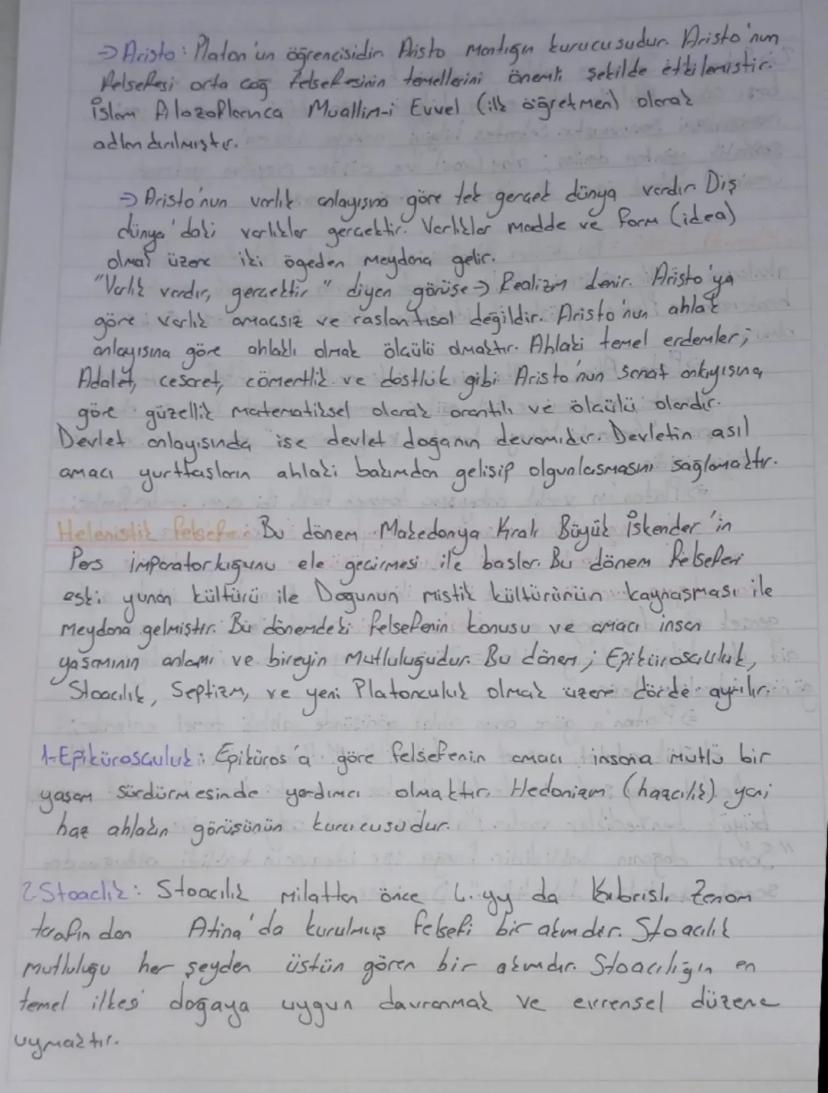 → Aristo: Platon'un öğrencisidir. Aisto mantığın kurucusudur. Aristo'nun
Felsefesi orta çağ Felsefesinin temellerini önemli şekilde etkilemistir.
İslam Filozoflarınca Muallim-i Evvel (ilk öğretmen) olarak
adlandırılmıştır.
→ Aristo'nun varlık anlayısına göre tek gerçek dünya vardır. Dış
dünya'daki varlıklar gerçektir. Varlıklar madde ve form (idea)
olmak üzere iki ögeden meydana gelir.
"Varlık vardır, gerçektir" diyen görüse → Realizm denir. Aristo'ya
göre varlık amaçsız ve raslantısal değildir. Aristo'nun ahlak
anlayısına göre ahlaklı olmak ölçülü olmaktır. Ahlaki temel erdemler;
Adalet, cesaret, cömertlik ve dostluk gibi Aristo'nun sanat anlayısına
göre güzellik matematiksel olarak orantılı ve ölçülü olandır.
Devlet anlayısında ise devlet doğanın devamıdır. Devletin asıl
amacı yurttaşların ahlaki bakımdan gelisip olgunlasmasını sağlamaktır.
Helenistik Felsefe: Bu dönem Makedonya Kralı Büyük İskender'in
Pers imparatorlugunu ele geçirmesi ile baslar. Bu dönem felsefesi
eski yunan kültürü ile Dogunun mistik kültürünün kaynaşması ile
meydana gelmistir. Bu dönemdeki felsefenin konusu ve amacı insan
yasamının anlamı ve bireyin mutluluğudur. Bu dönem; Epikürosculuk,
Stoacılık, Septizm, ve yeni Platonculuk olmak üzere dörde ayrılır.
1-Epikürosculuk: Epiküros'a göre felsefenin amacı insana mutlu bir
yaşam sürdürmesinde yardımcı olmaktır. Hedonizm (hazcılık) yani
haz ahlakın görüsünün kurucusudur.
2.Stoacılık: Stoacılık milattan önce 4. yy da Kıbrıslı Zenom
tarafından Atina'da kurulmuş felsefi bir akımdır. Stoacılık
mutluluğu her şeyden üstün gören bir akımdır. Stoacılığın en
temel ilkesi doğaya uygun davranmak ve evrensel düzene
uymaktır.